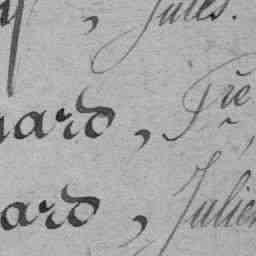 , Jules.
ard, Fre
ard, Julien